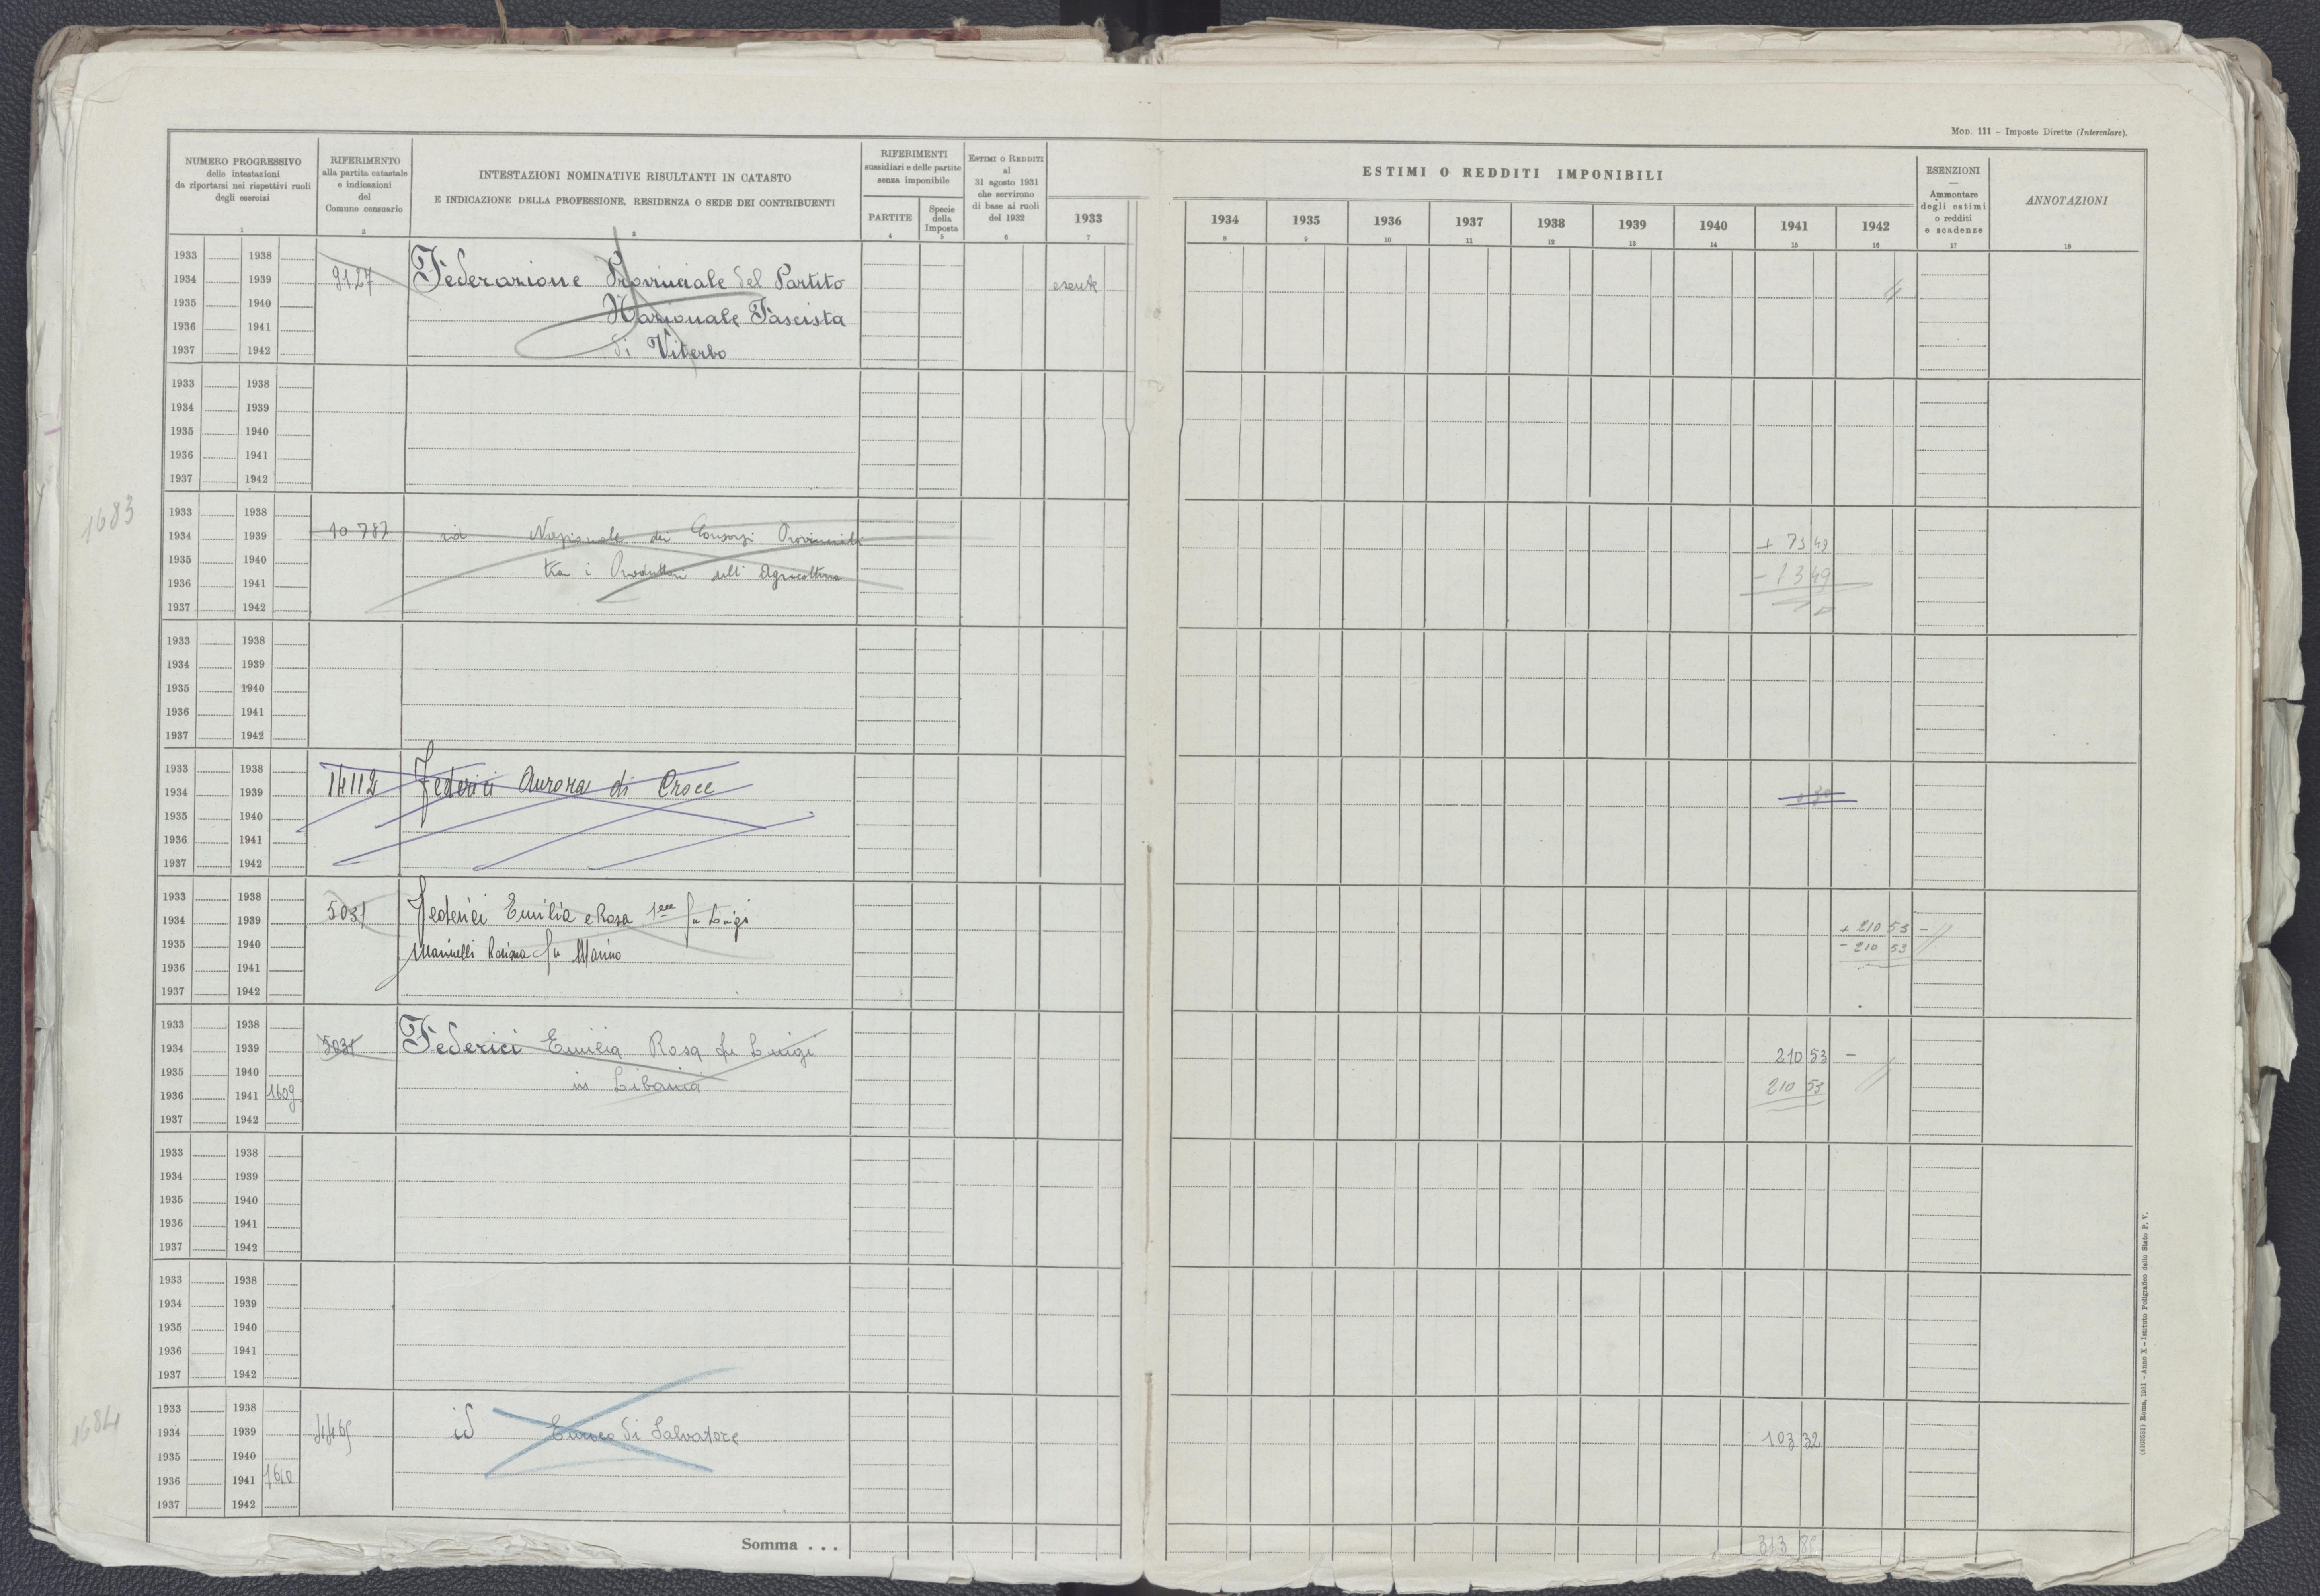 Mod. 111 – Imposte Dirette (Intercalare).
NUMERO PROGRESSIVO
delle intestazioni
da riportarsi nei rispettivi ruoli
degli esercizi
1
RIFERIMENTO
alla partita catastale
e indicazioni
del
Comune censuario
2
INTESTAZIONI NOMINATIVE RISULTANTI IN CATASTO
E INDICAZIONE DELLA PROFESSIONE, RESIDENZA O SEDE DEI CONTRIBUENTI
3
RIFERIMENTI
sussidiari e delle partite
senza imponibile
PARTITE
4
Specie
della
Imposta
5
Estimi o Redditi
al
31 agosto 1931
che servirono
di base ai ruoli
del 1932
6
1933
7
ESTIMI O REDDITI IMPONIBILI
1934 1935 1936 1937 1938 1939 1940 1941 1942
8 9 10 11 12 13 14 15 16
ESENZIONI
—
Ammontare
degli estimi
o redditi
e scadenze
17
ANNOTAZIONI
18
1933 1938
1934 1939 9127 Federazione Provinciale del Partito esente //
1935 1940 Nazionale Fascista
1936 1941
1937 1942 di Viterbo
1933 1938
1934 1939
1935 1940
1936 1941
1937 1942
1683
1933 1938
1934 1939 10787 id Nazionale dei Consorzi Provinciali + 73 49
1935 1940 tra i Produttori dell'Agricoltura
1936 1941
1937 1942
1933 1938
1934 1939
1935 1940
1936 1941
1937 1942
1933 1938
1934 1939 14112 Federici Aurora di Croce
1935 1940
1936 1941
1937 1942
1933 1938
1934 1939 5031 Federici Emilia e Rosa fu Luigi + 210 53 –
1935 1940 fu Marino – 210 53
1936 1941
1937 1942
1933 1938
1934 1939 5031 Federici Emilia Rosa fu Luigi 210 53 –
1935 1940 in Libania 210 53
1936 1941 1609
1937 1942
1933 1938
1934 1939
1935 1940
1936 1941
1937 1942
1933 1938
1934 1939
1935 1940
1936 1941
1937 1942
1684
1933 1938
1934 1939 id di Salvatore 103 32
1935 1940
1936 1941 1610
1937 1942
Somma . . . 313 85
(4109551) Roma, 1931 – Anno X – Istituto Poligrafico dello Stato P. V.